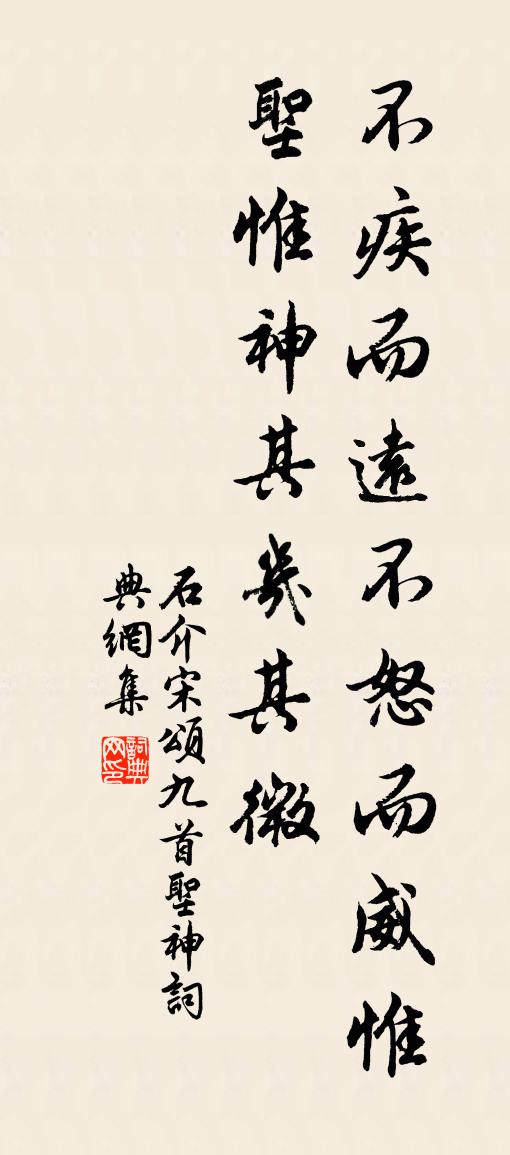 不疾而遠不怒而威惟
聖惟神其幾其微
石介宋頌九首聖神詞
典網集
詞典
网印